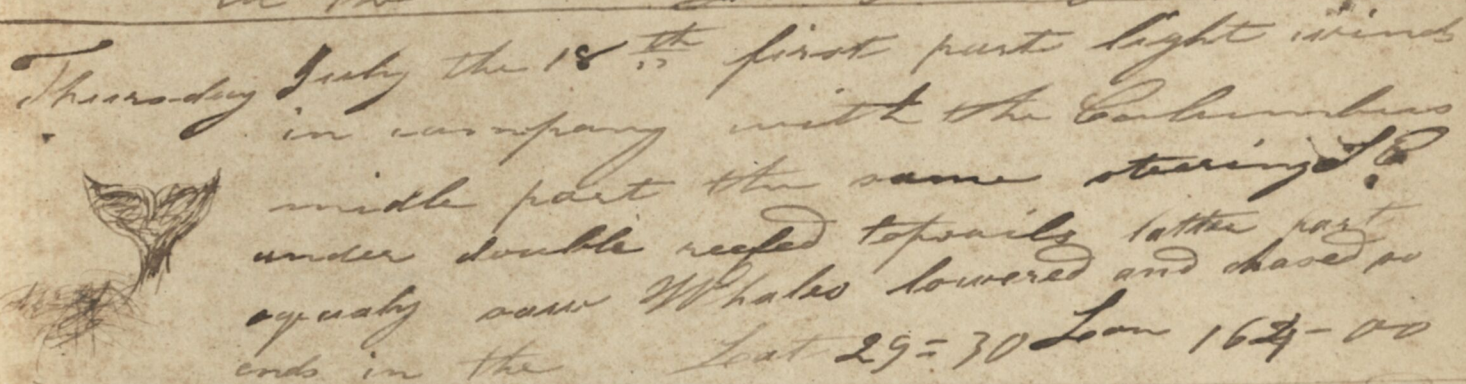 Thursday July the 18th first part light winds
in company with the Columbus
midle part the same steering S.E
under double reefed topsails latter part
squaly saw Whales lowered and chased so
ends in the Lat 29=30 Lon 164-00